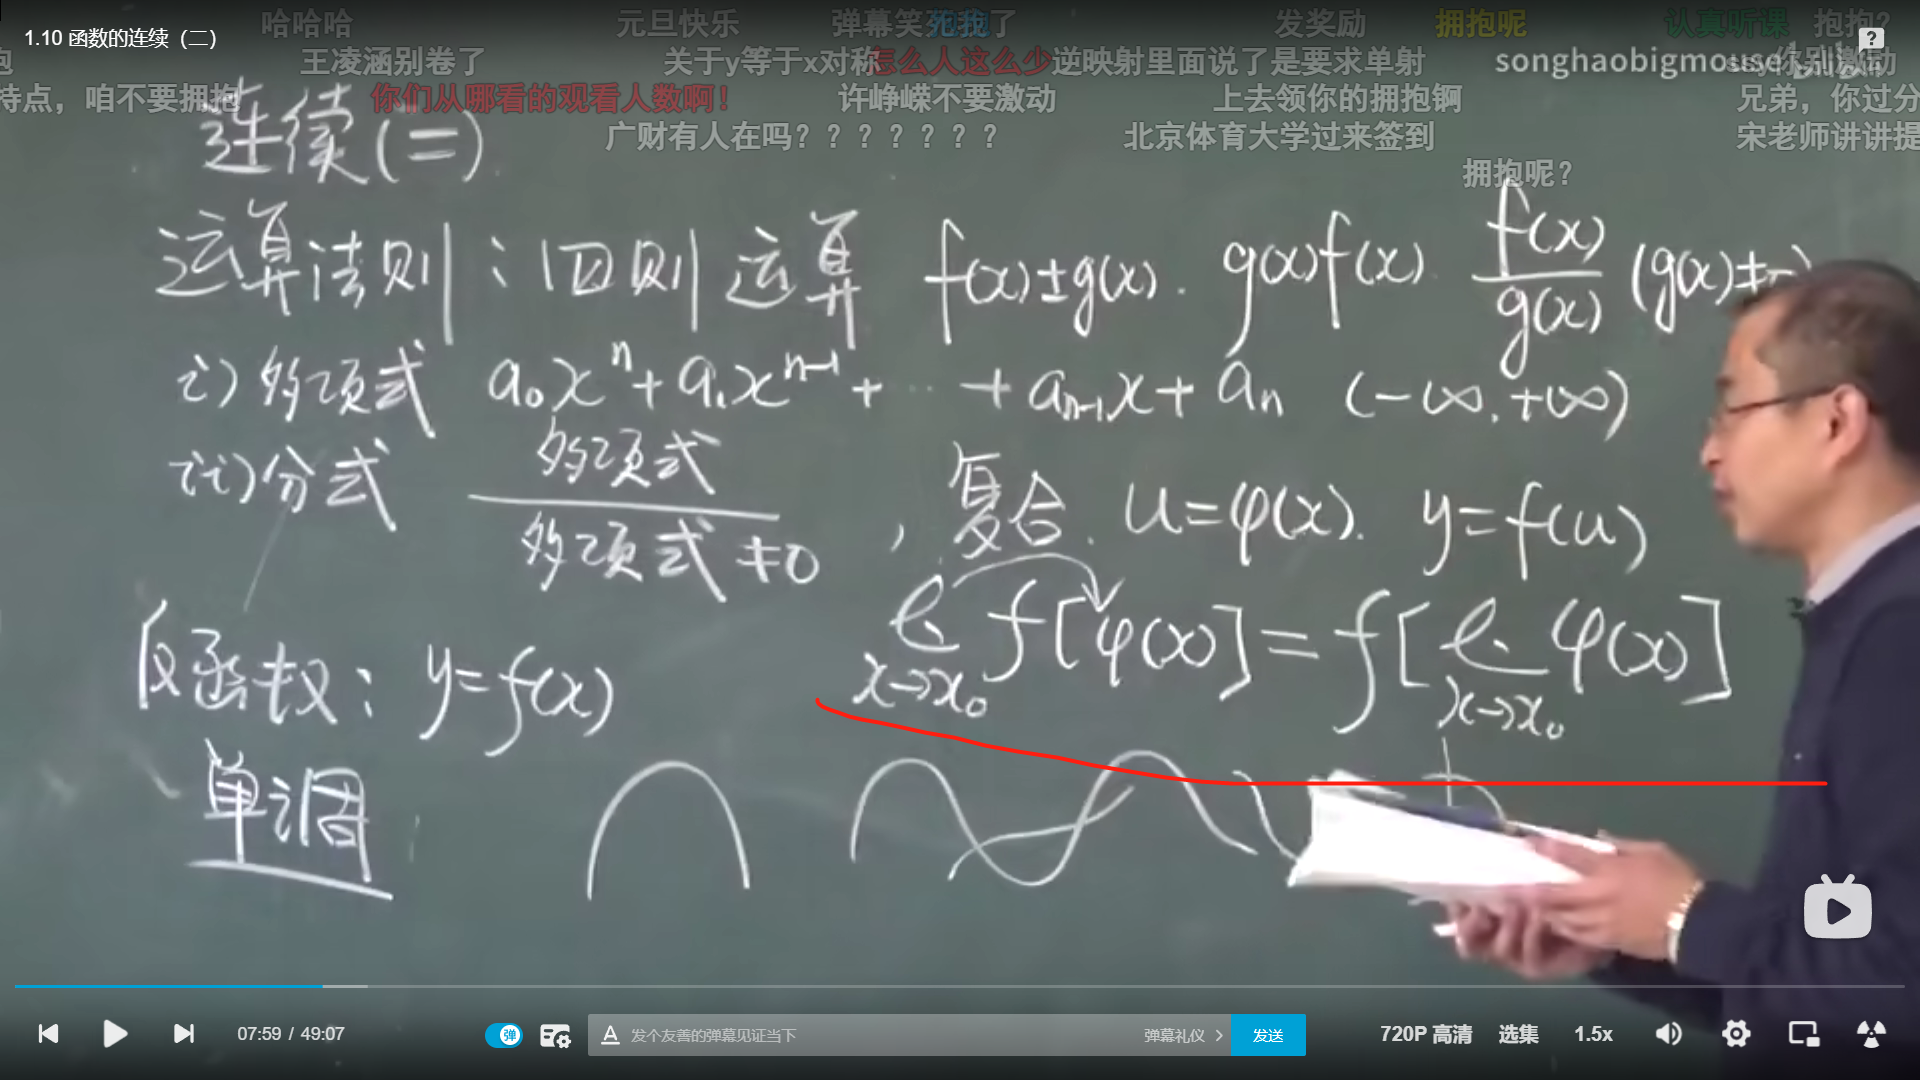 哈哈哈 元旦快乐 弹幕笑死我了 发奖励 拥抱呢 认真听课 抱抱?
1.10 函数的连续（二）
王凌涵别卷了 关于y等于x对称 怎么人这么少 逆映射里面说了是要求单射
songhaobigmosse
特点，咱不要拥抱 你们从哪看的观看人数啊！ 许峥嵘不要激动 上去领你的拥抱锕 兄弟，你过分
广财有人在吗？？？？？？？ 北京体育大学过来签到 宋老师讲讲提
拥抱呢？
连续(二)
运算法则：四则运算 f(x)±g(x). g(x)f(x) f(x)/g(x) (g(x)≠
i) 多项式 a₀xⁿ+a₁xⁿ⁻¹+…+aₙ₋₁x+aₙ (-∞,+∞)
ii) 分式 多项式/多项式≠0 , 复合. u=φ(x). y=f(u)
lim x→x₀ f[φ(x)]=f[lim x→x₀ φ(x)]
反函数：y=f(x)
单调
07:59 / 49:07 弹 发个友善的弹幕见证当下 弹幕礼仪 发送 720P 高清 选集 1.5x